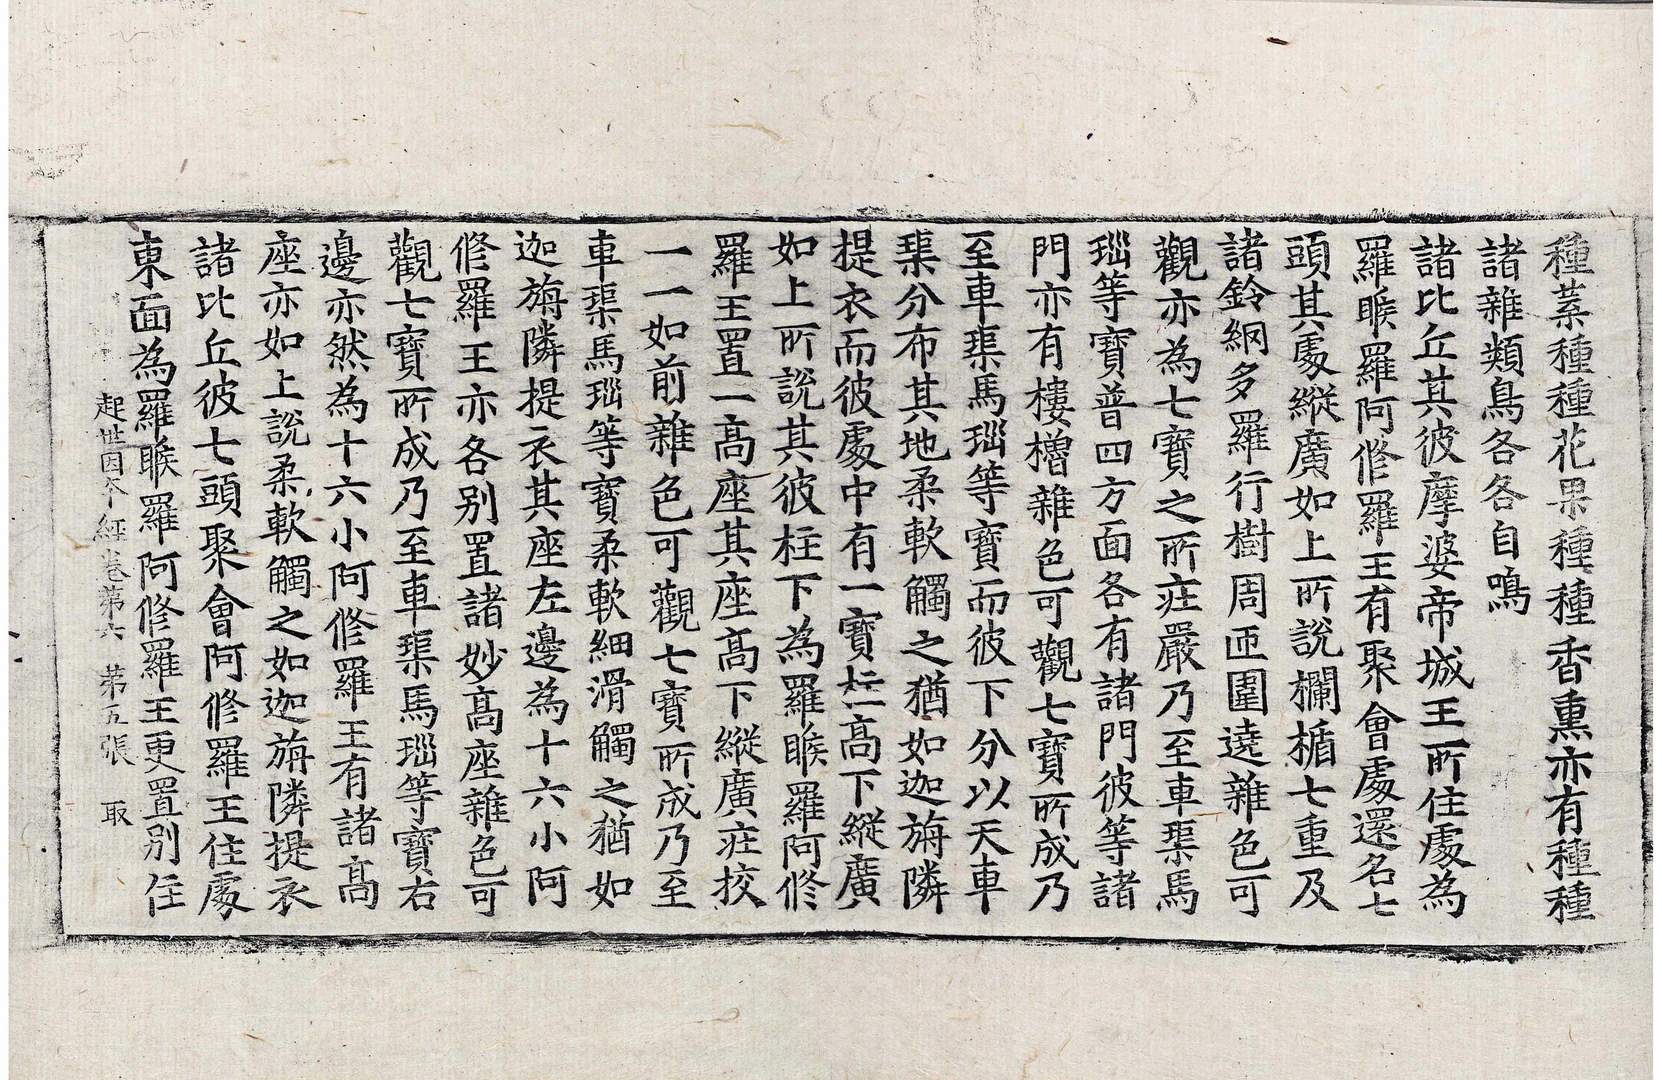 種菓種種花果種種香熏亦有種種
諸雜類鳥各各自鳴
諸比丘其彼摩婆帝城王所住處為
羅睺羅阿修羅王有聚會處還名七
頭其處縱廣如上所說欄楯七重及
諸鈴網多羅行樹周匝圍遶雜色可
觀亦為七寶之所莊嚴乃至車𤦲馬
瑙等寶普四方面各有諸門彼等諸
門亦有樓櫓雜色可觀七寶所成乃
至車𤦲馬瑙等寶而彼下分以天車
𤦲分布其地柔軟觸之猶如迦旃隣
提衣而彼處中有一寶柱高下縱廣
如上所說其彼柱下為羅睺羅阿修
羅王置一高座其座高下縱廣莊挍
一一如前雜色可觀七寶所成乃至
車𤦲馬瑙等寶柔軟細滑觸之猶如
迦旃隣提衣其座左邊為十六小阿
修羅王亦各別置諸妙高座雜色可
觀七寶所成乃至車𤦲馬瑙等寶右
邊亦然為十六小阿修羅王有諸高
座亦如上說柔軟觸之如迦旃隣提衣
諸比丘彼七頭聚會阿修羅王住處
東面為羅睺羅阿修羅王更置別住
起世因本經卷第六 第五張 取